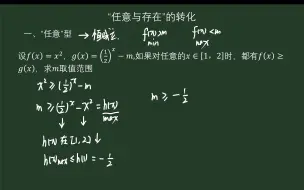 “任意与存在”的转化
一、“任意”型 → 恒成立 f(x)≥m f(x)≤m
min max
设f(x) = x²，g(x)=(1/2)^x − m,如果对任意的x ∈ [1，2]时、都有f(x) ≥
g(x)，求m取值范围
x² ≥ (1/2)^x − m
m ≥ (1/2)^x − x² = h(x) m ≥ −1/2
max
↓ ↓
h(x) 在 [1,2] ↓
h(x)max ≤ h(1) = −1/2